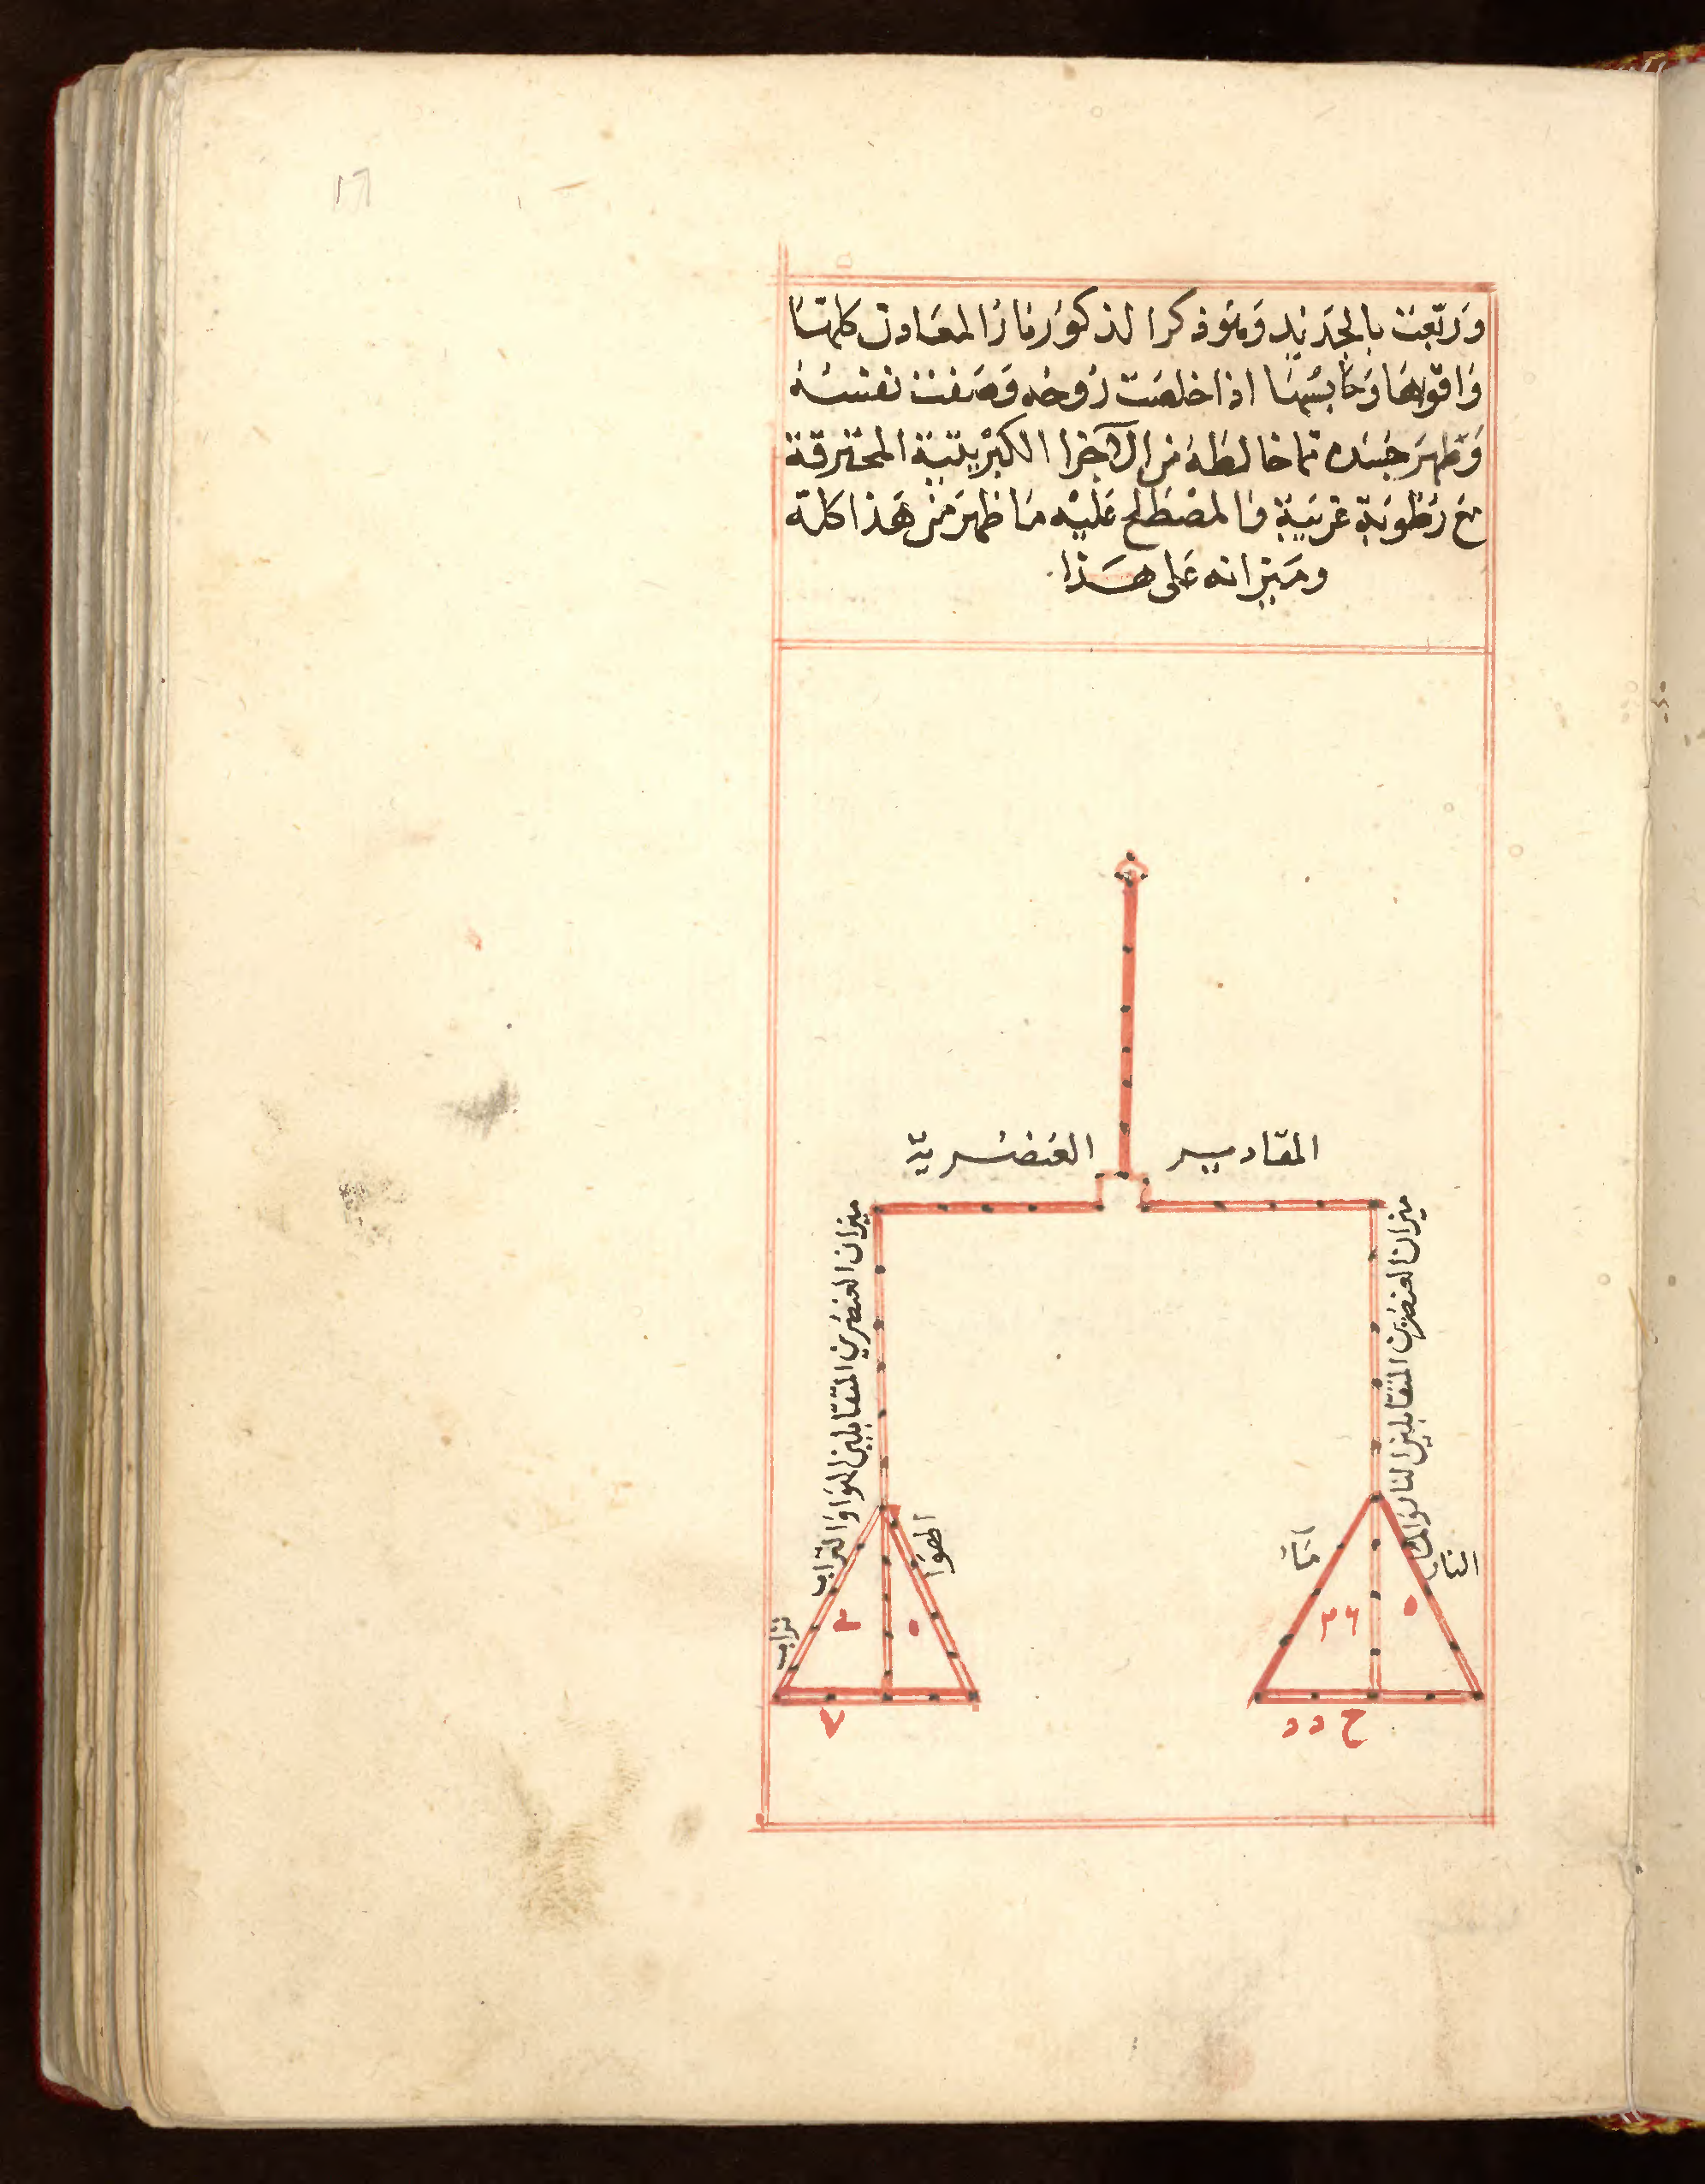 وربعت بالجديد وهو ذكر الذكور نار المعادن كلها
واقواها وحابسها اذا خلصت روحه وصفت نفسه
وتطهر جسده مما خالطه من الاجزا الكبريتية المحترقة
مع رطوبة غريبة فالمصطلح عليه ما ظهر من هذا كله
وميزانه على هذا
المقادير العنصرية
ميزان العنصرين المتقابلين النار والماء
ميزان العنصرين المتقابلين الهوا والتراب
النار
ماء
الهوا
تراب
٥
٣٤
ح
٧